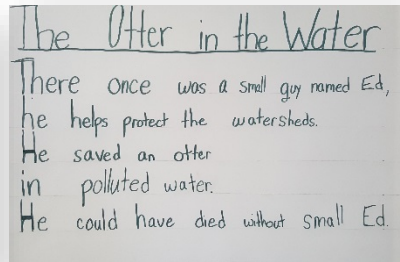 The Otter in the Water
There once was a small guy named Ed,
he helps protect the watersheds.
He saved an otter
in polluted water.
He could have died without small Ed.